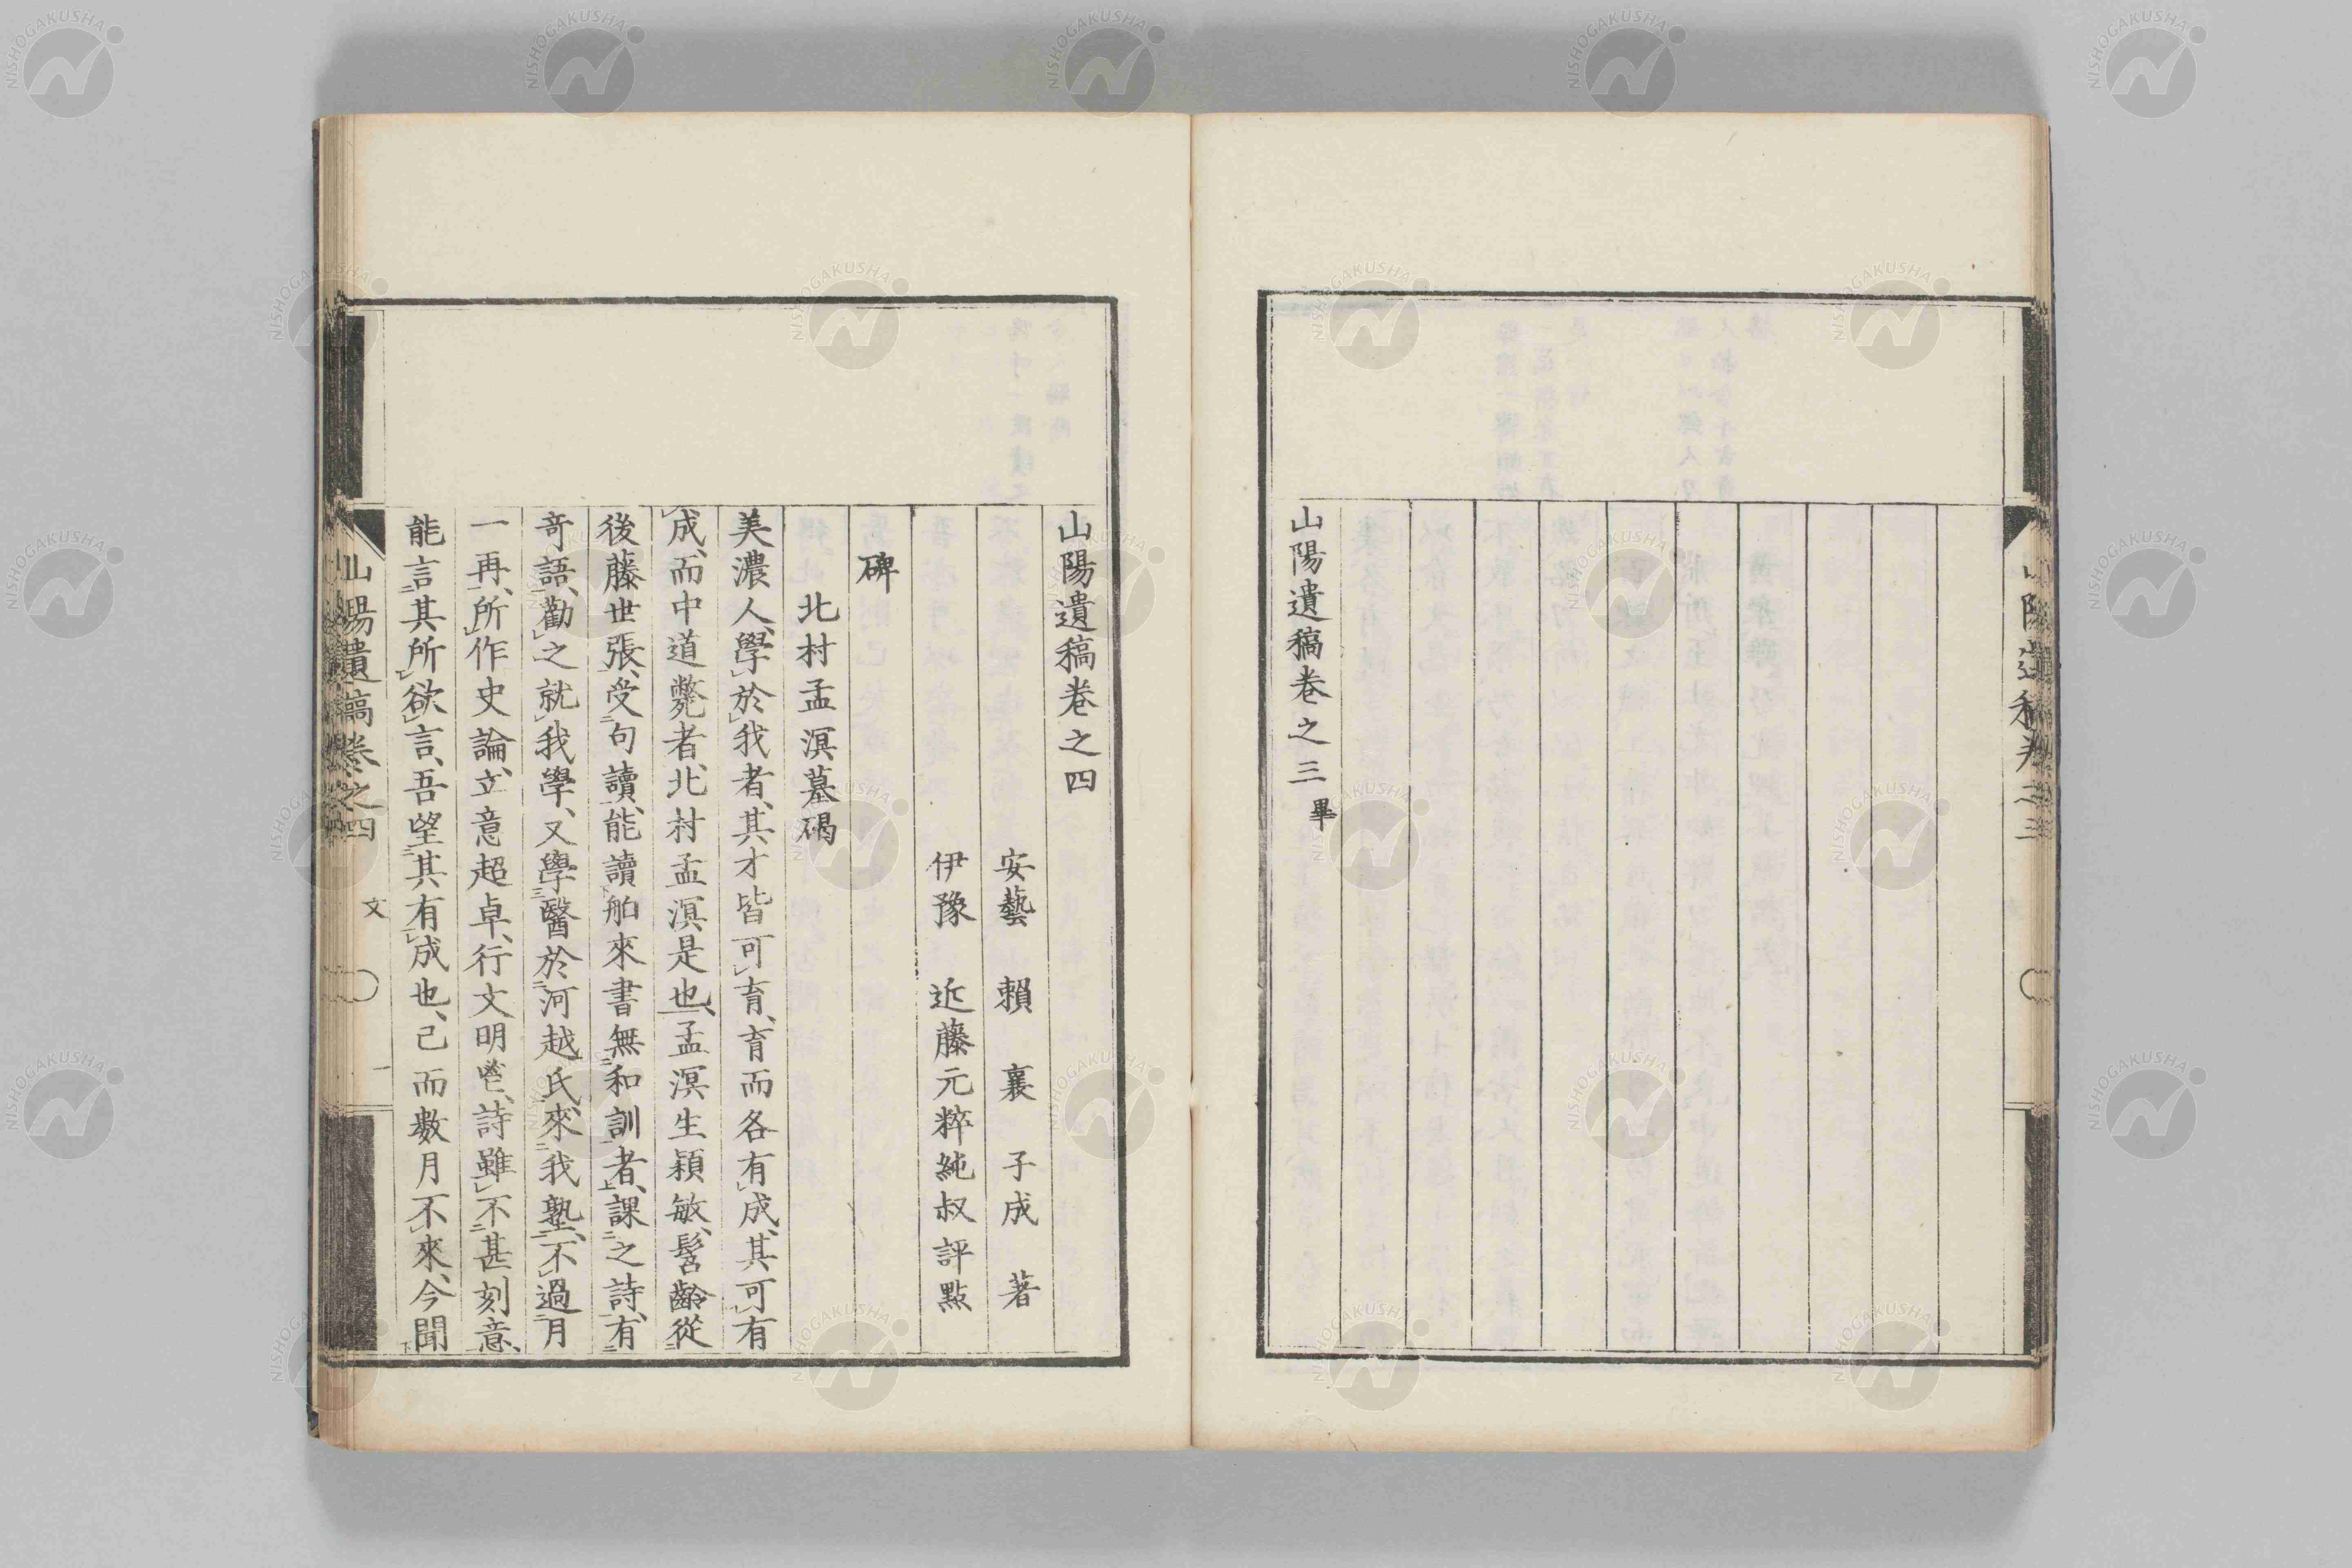 山陽遺稿卷之三畢
山陽遺稿卷之四
安藝 賴 襄 子成 著
伊豫 近藤元粹純叔評點
碑
北村孟溟墓碣
美濃人、學於我者、其才皆可育、育而各有成、其可有
成、而中道斃者、北村孟溟是也、孟溟生穎敏、髫齡從
後藤世張、受句讀、能讀舶來書無和訓者、課之詩、有
奇語、勸之就我學、又學醫於河越氏、來我塾、不過月
一再、所作史論、立意超卓、行文明鬯、詩雖不甚刻意、
能言其所欲言、吾望其有成也、已而數月不來、今聞
山陽遺稿卷之四 文 一
NISHOGAKUSHA